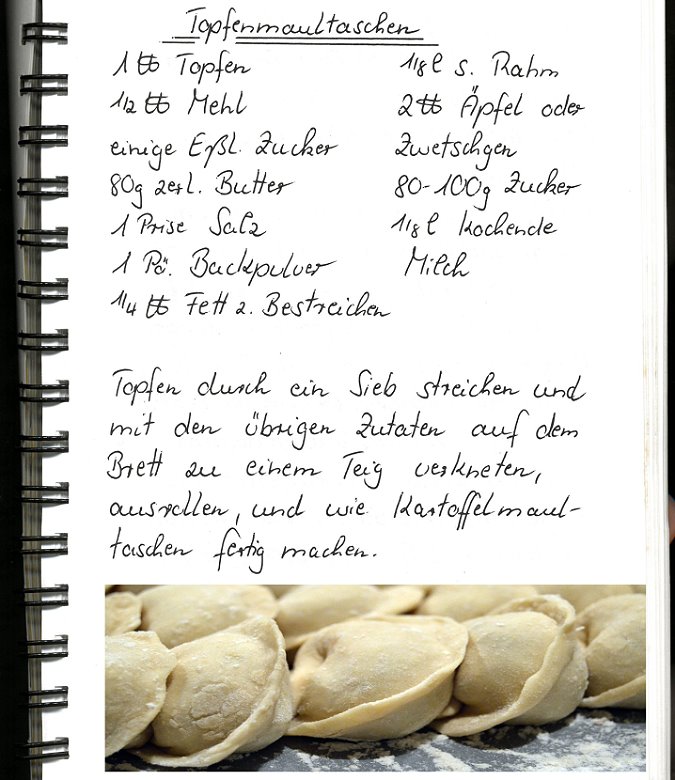 Topfenmaultaschen
1 ℔ Topfen
1/2 ℔ Mehl
einige Eßl. Zucker
80g zerl. Butter
1 Prise Salz
1 Pä. Backpulver
1/4 ℔ Fett z. Bestreichen
1/8 l s. Rahm
2 ℔ Äpfel oder
Zwetschgen
80-100g Zucker
1/8 l kochende
Milch
Topfen durch ein Sieb streichen und
mit den übrigen Zutaten auf dem
Brett zu einem Teig verkneten,
ausrollen, und wie Kartoffelmaul-
taschen fertig machen.